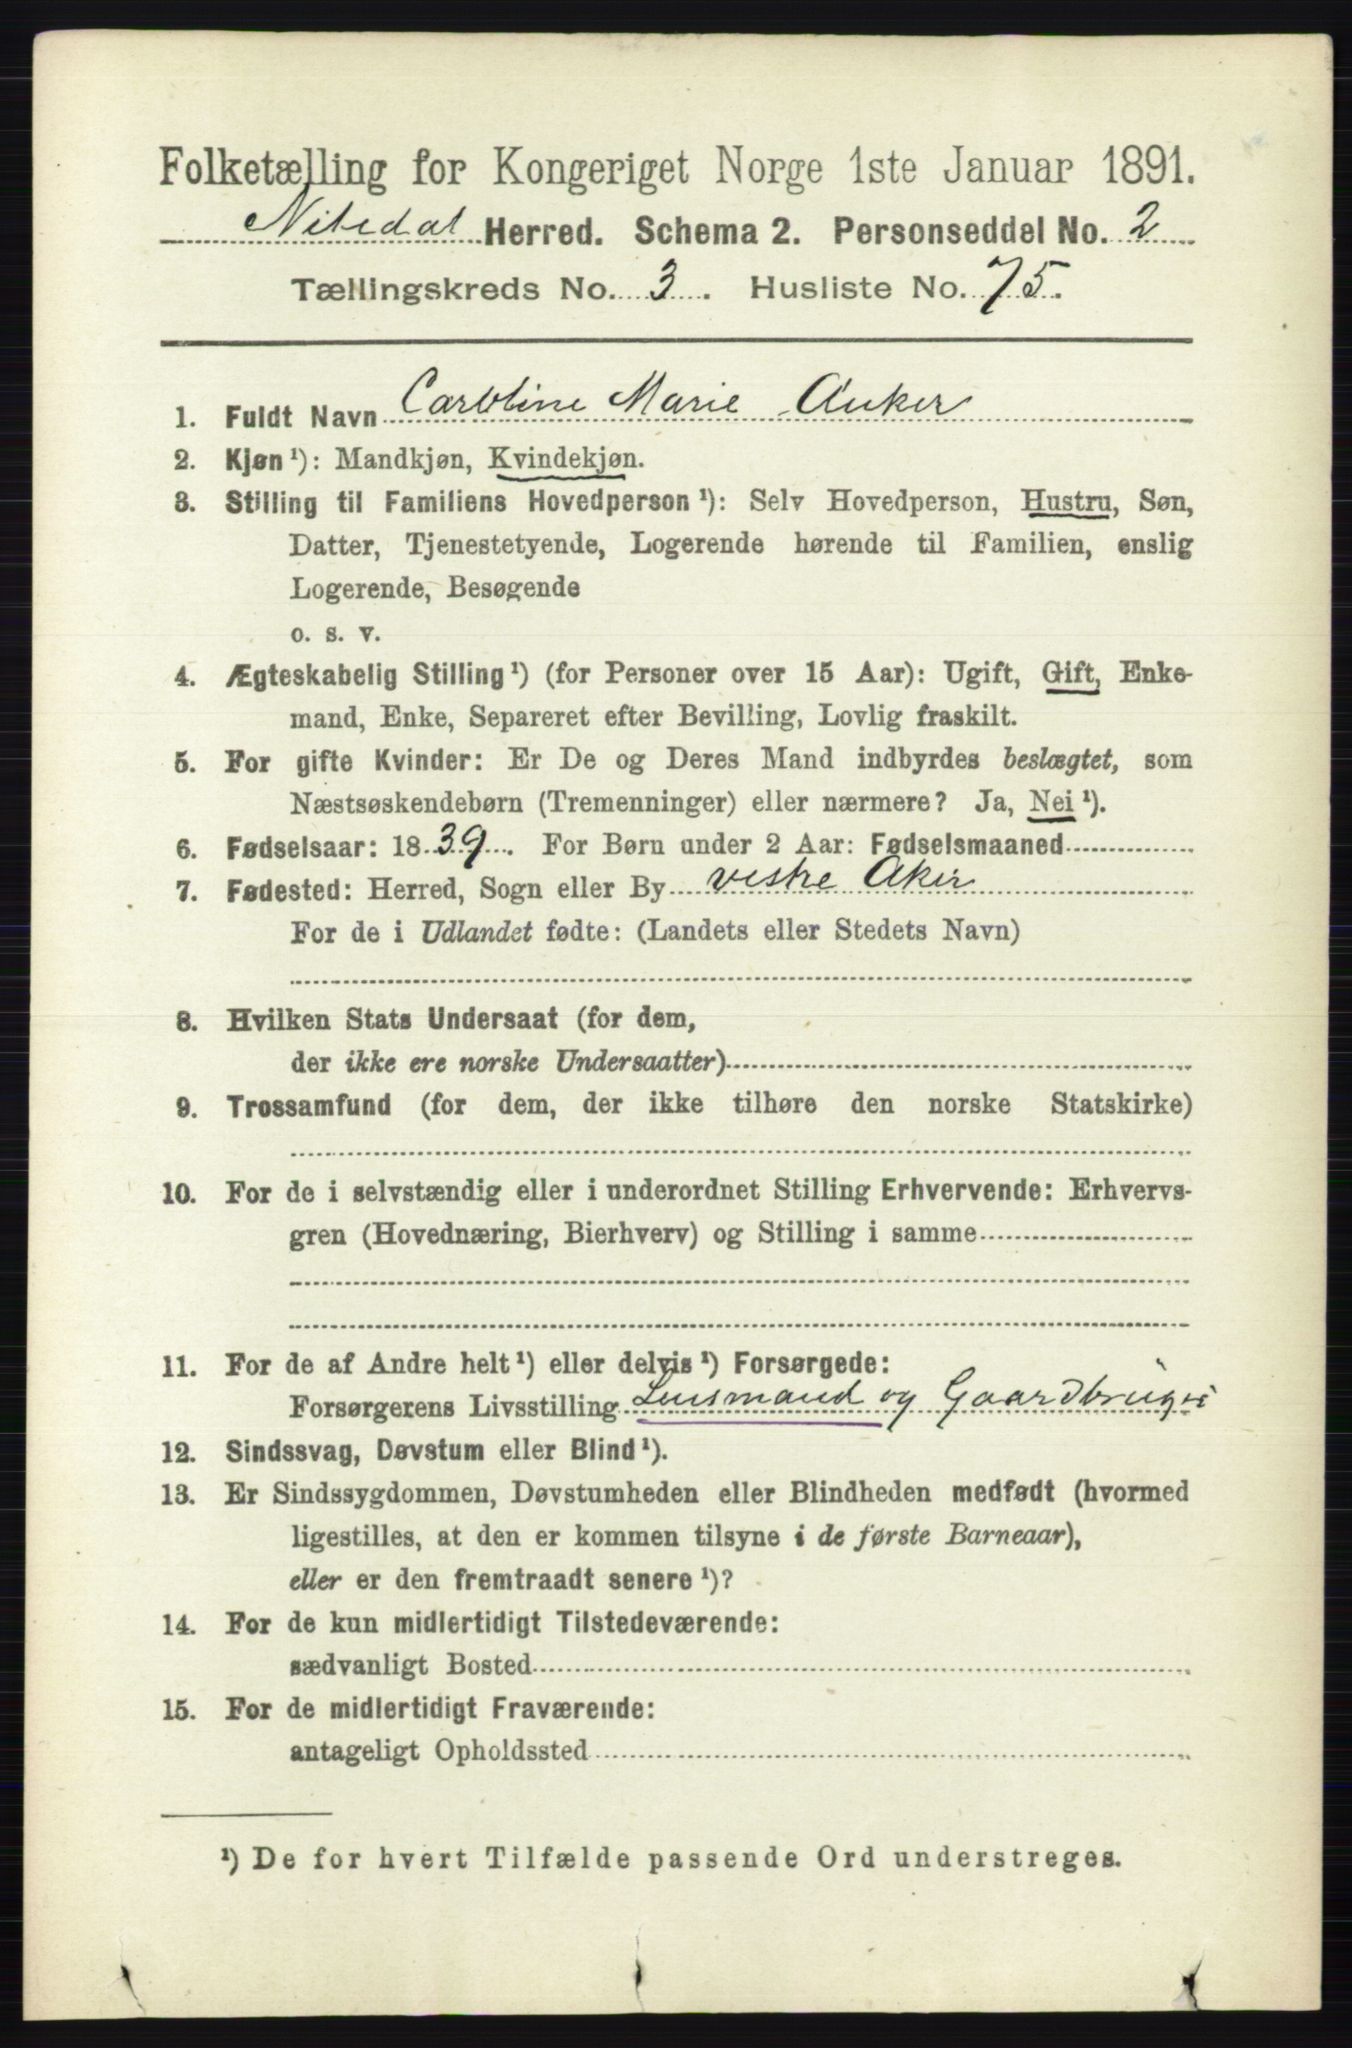 Folketælling for Kongeriget Norge 1ste Januar 1891.
Nitedal Herred. Schema 2. Personseddel No. 2
Tællingskreds No. 3. Husliste No. 75.
1. Fuldt Navn Caroline Marie Anker
2. Kjøn ¹): Mandkjøn, Kvindekjøn.
3. Stilling til Familiens Hovedperson ¹): Selv Hovedperson, Hustru, Søn,
Datter, Tjenestetyende, Logerende hørende til Familien, enslig
Logerende, Besøgende
o. s. v.
4. Ægteskabelig Stilling ¹) (for Personer over 15 Aar): Ugift, Gift, Enke-
mand, Enke, Separeret efter Bevilling, Lovlig fraskilt.
5. For gifte Kvinder: Er De og Deres Mand indbyrdes beslægtet, som
Næstsøskendebørn (Tremenninger) eller nærmere? Ja, Nei ¹).
6. Fødselsaar: 1839. For Børn under 2 Aar: Fødselsmaaned
7. Fødested: Herred, Sogn eller By vestre Aker
For de i Udlandet fødte: (Landets eller Stedets Navn)
8. Hvilken Stats Undersaat (for dem,
der ikke ere norske Undersaatter)
9. Trossamfund (for dem, der ikke tilhøre den norske Statskirke)
10. For de i selvstændig eller i underordnet Stilling Erhvervende: Erhvervs-
gren (Hovednæring, Bierhverv) og Stilling i samme
11. For de af Andre helt ¹) eller delvis ¹) Forsørgede:
Forsørgerens Livsstilling Lensmand og Gaardbruger
12. Sindssvag, Døvstum eller Blind ¹).
13. Er Sindssygdommen, Døvstumheden eller Blindheden medfødt (hvormed
ligestilles, at den er kommen tilsyne i de første Barneaar),
eller er den fremtraadt senere ¹)?
14. For de kun midlertidigt Tilstedeværende:
sædvanligt Bosted
15. For de midlertidigt Fraværende:
antageligt Opholdssted
¹) De for hvert Tilfælde passende Ord understreges.